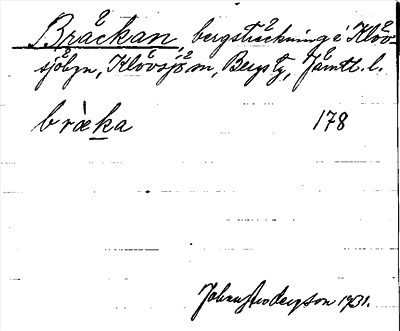 Bräckan, bergsträckning i Klöv-
sjöbyn, Klövsjö sn, Bergs tg, Jämtl. l.
bràka 178
1931.